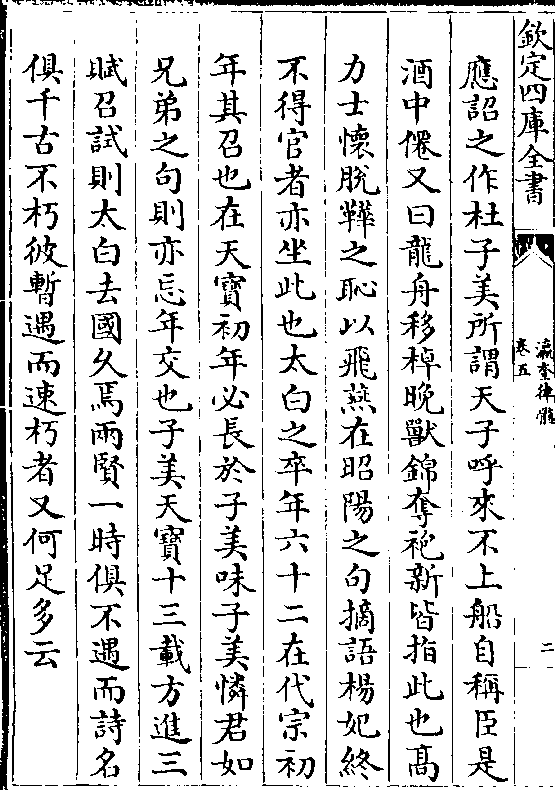 欽定四庫全書
瀛奎律髓
卷五
二
應詔之作杜子美所謂天子呼來不上船自稱臣是
酒中僊又曰龍舟移棹晚獸錦奪袍新皆指此也髙
力士懷脫鞾之恥以飛燕在昭陽之句摘語楊妃終
不得官者亦坐此也太白之卒年六十二在代宗初
年其召也在天寶初年必長於子美味子美憐君如
兄弟之句則亦忘年交也子美天寶十三載方進三
賦召試則太白去國久焉兩賢一時俱不遇而詩名
俱千古不朽彼暫遇而速朽者又何足多云